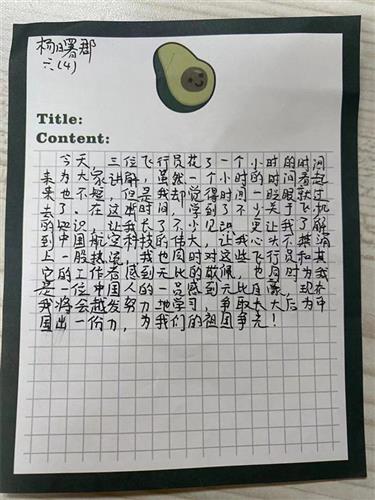 杨曙郡
六(4)
Title:
Content:
今天,三位飞行员花了一个小时的时间
来为大家讲解,虽然一个小时的时间看起
来也不短,但是我却觉得时间一眨眼就过
去了。在这出时间,学到了不少关于飞机
的知识,让我长了不小见识,更让我了解
到中国航空科技的伟大,让我心头不禁涌
上一股热流,我也同时对这些飞行员和为
它的工作者感到无比的敬佩,也同时为我
是一位中国人的一员感到无比自豪,现在
我将会越发努力地学习,争取长大后为中
国出一份力,为我们的祖国争光!